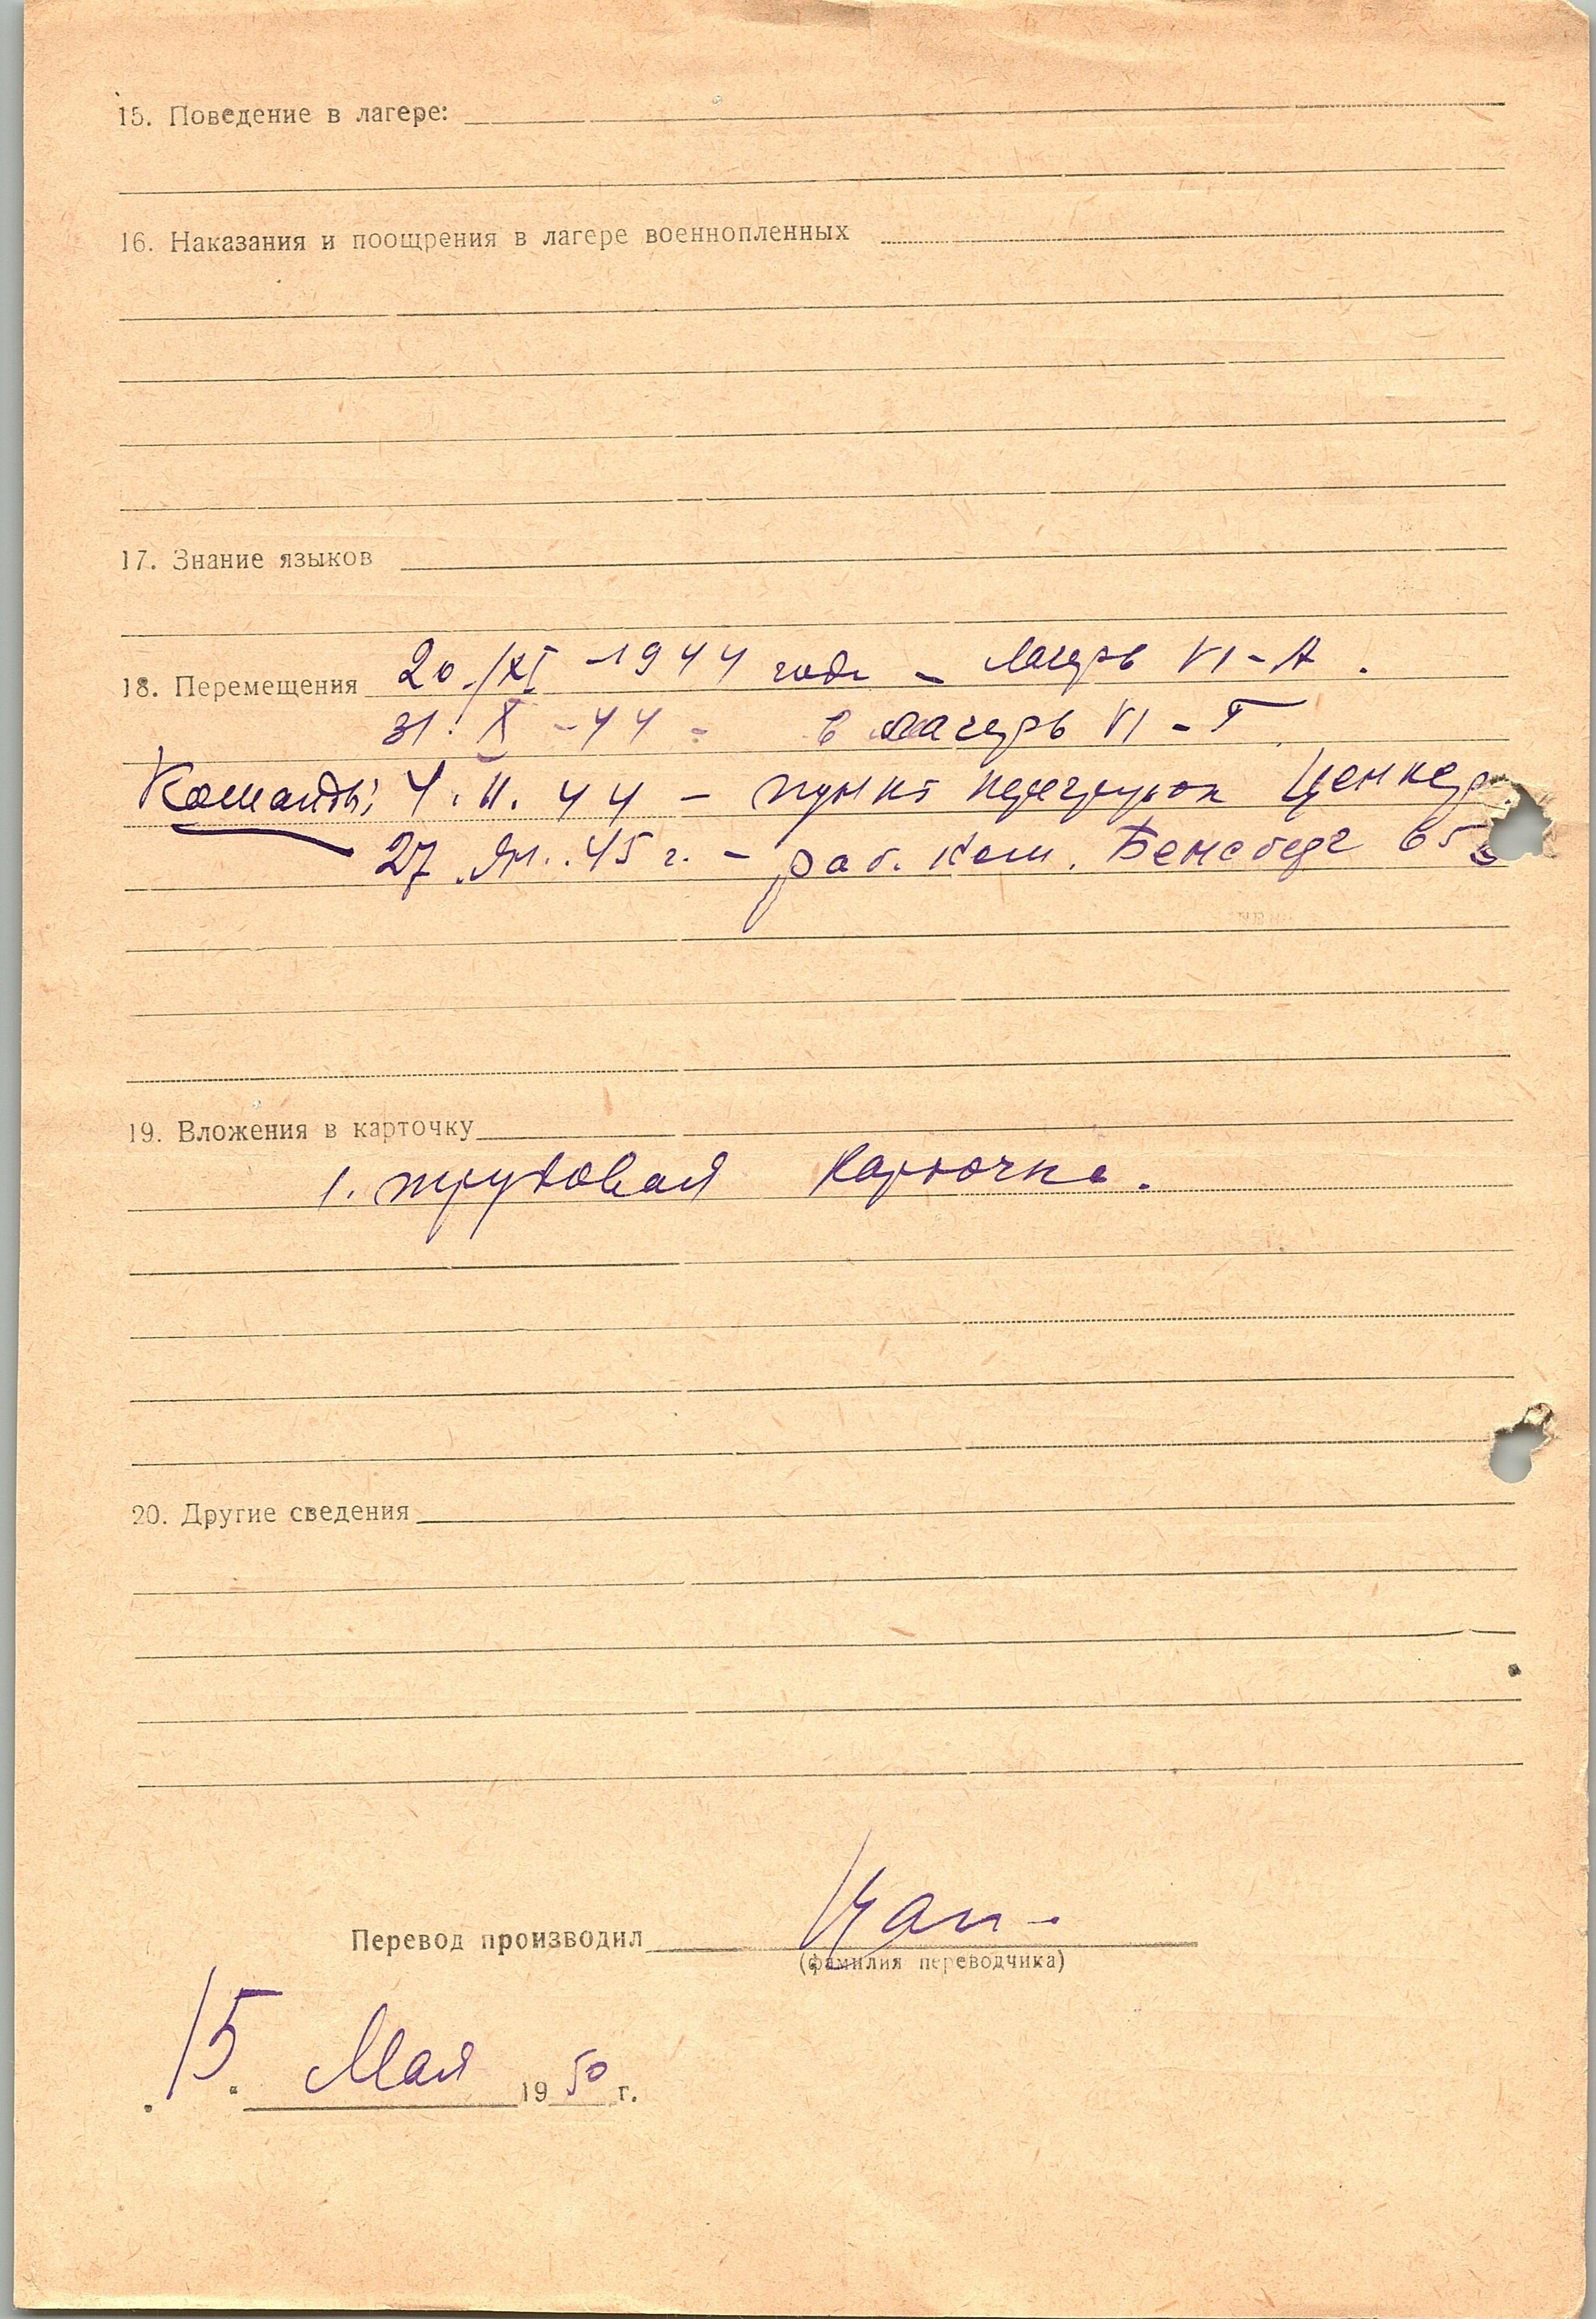 15. Поведение в лагере:
16. Наказания и поощрения в лагере военнопленных
17. Знание языков
18. Перемещения 20/XI -1944 года - лагерь VI-А.
31. X - 44 - в лагерь VI - Г
Команды: 4. II. 44 - пункт перегрузок
27 Ян. 45 г. - раб. ком. Бенсберг 65
19. Вложения в карточку
1. трудовая карточка.
20. Другие сведения
Перевод производил
(фамилия переводчика)
15. Мая 1950 г.